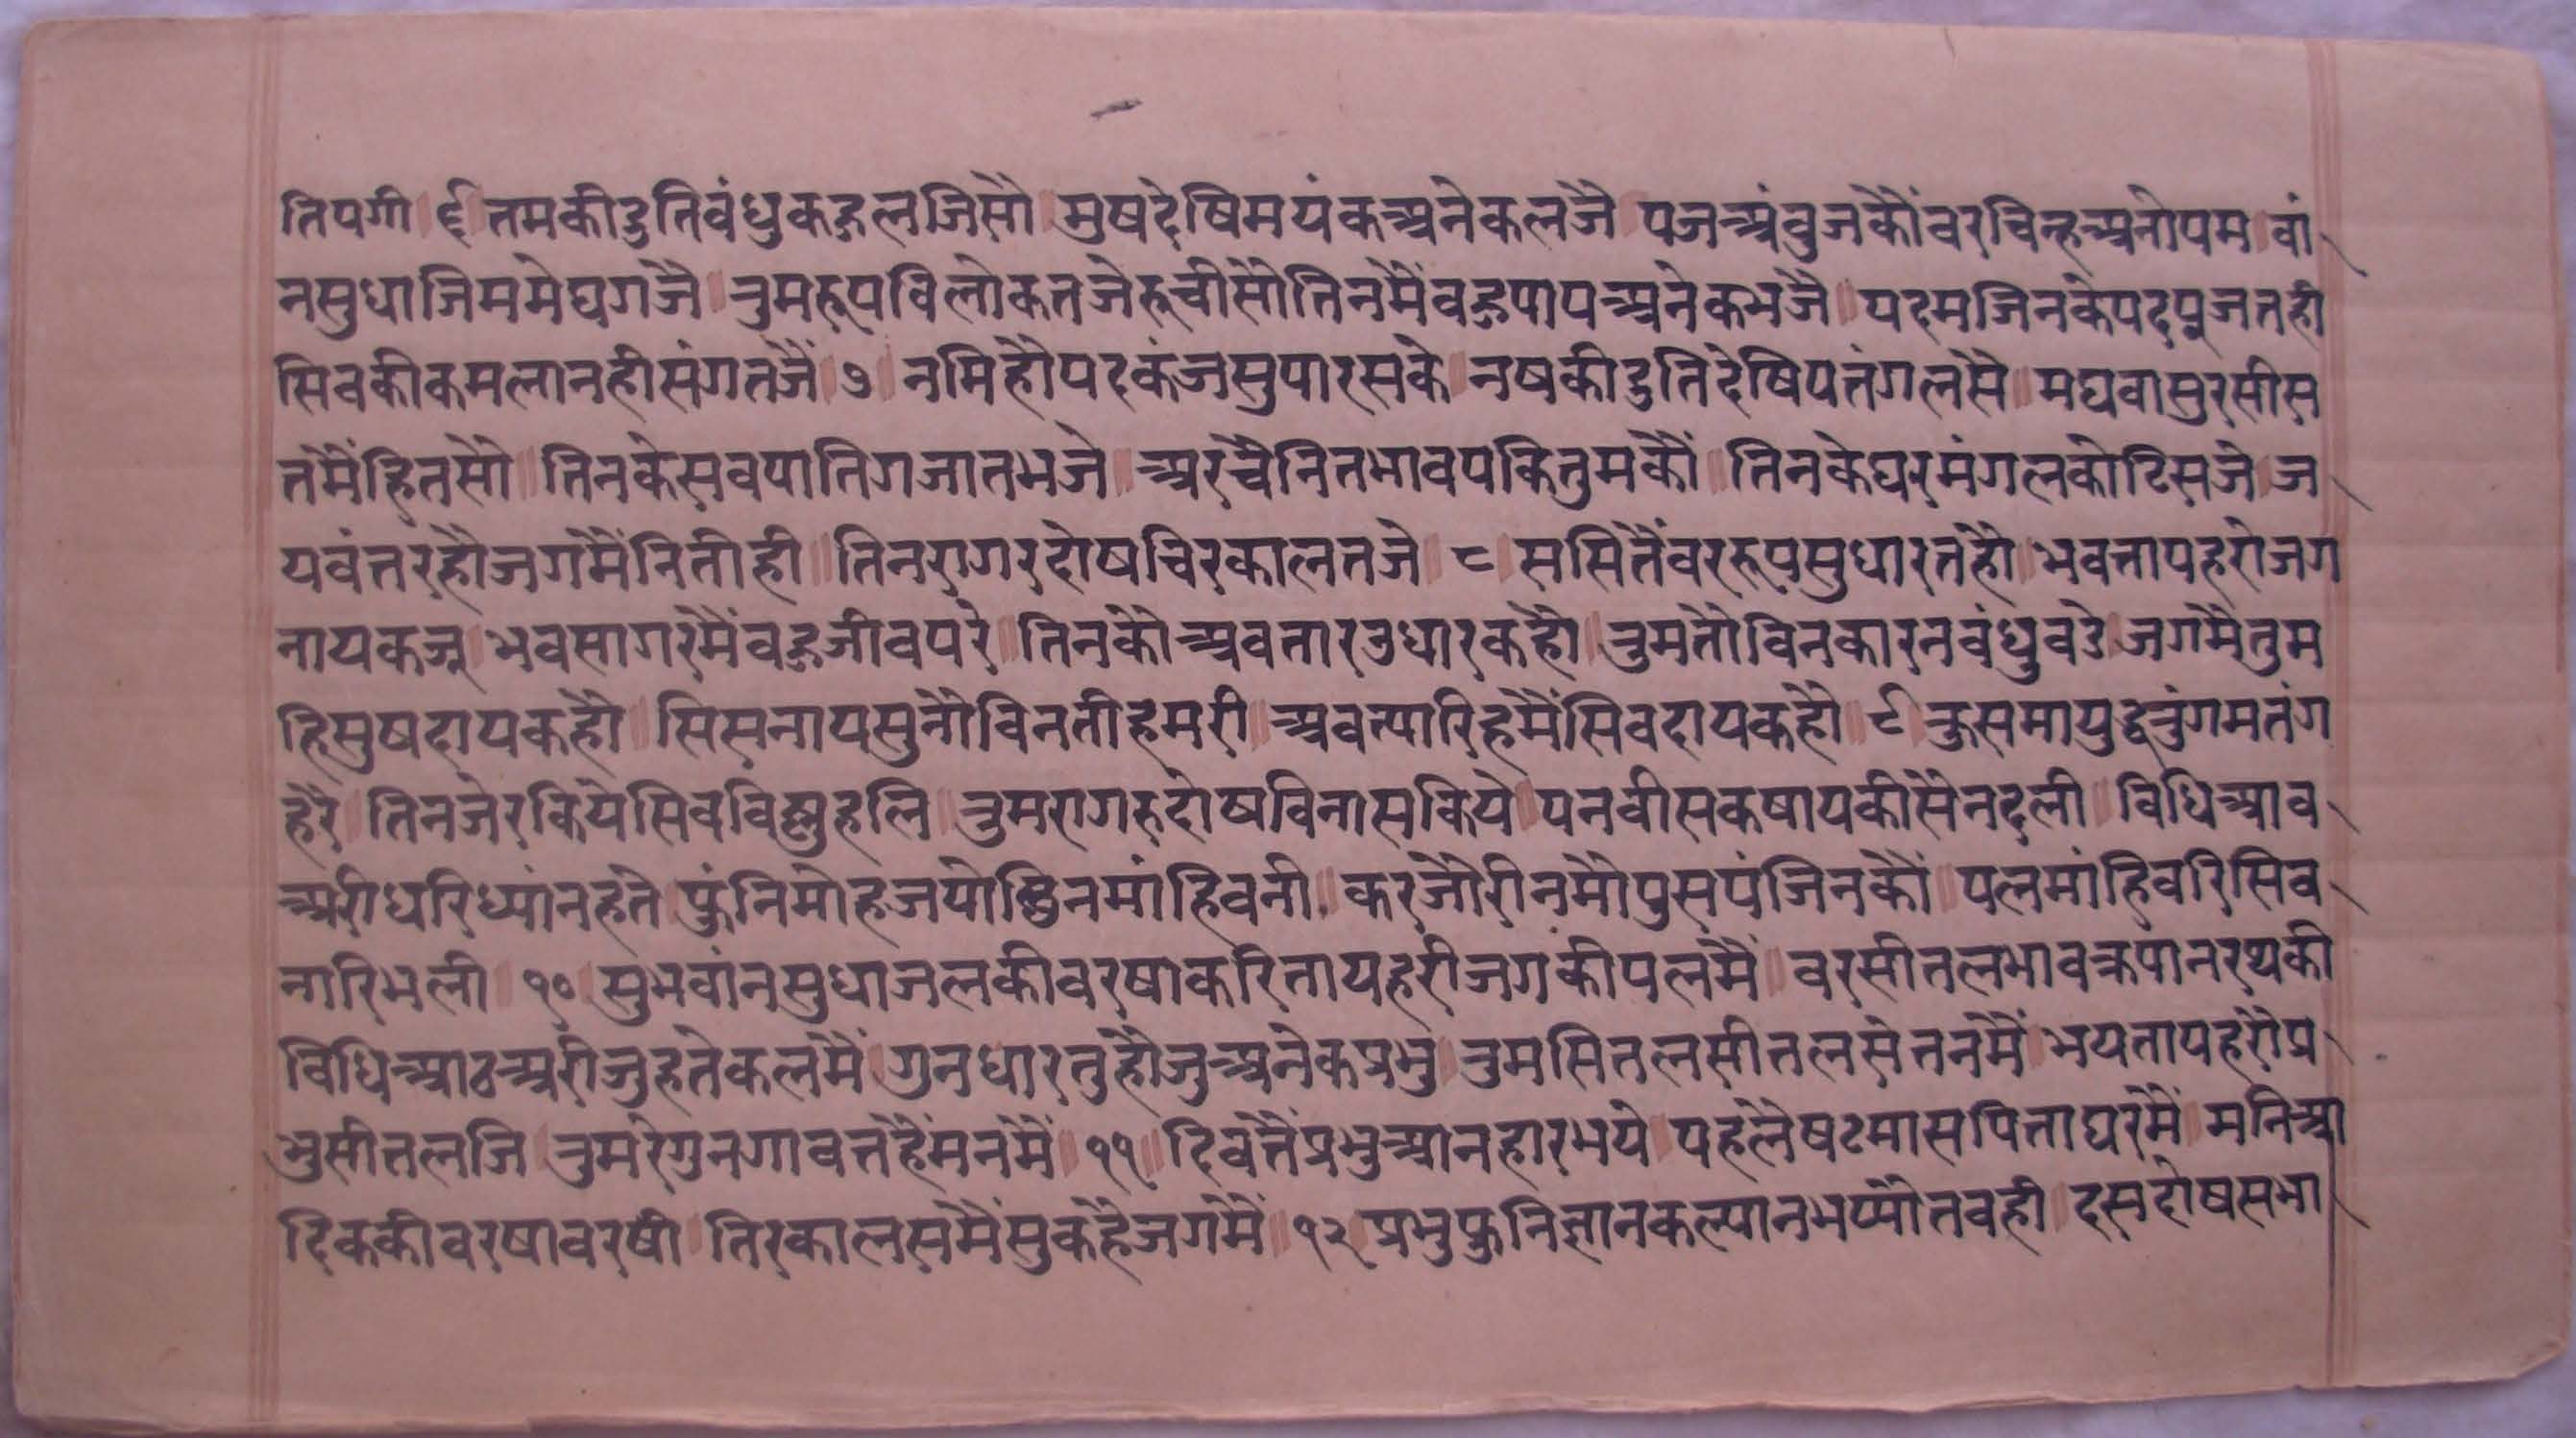 तिपगी ॥६॥ तमकीदुतिवंधुकहूलजिसौ ॥ मुषदेषिमयंकअनेकलजै ॥ पजअंवुजकौंवरचिन्हअनोपम ॥ वां
नसुधाजिममेघगजै ॥ तुमरूपविलोकतजेरूचीसौंतिनमैंवहूपापअनेकभजै ॥ पदमजिनकेपदपूजतही
सिवकीकमलानहीसंगतजैं ॥७॥ नमिहौपदकंजसुपारसके ॥ नषकीदुतिदेषिपतंगलसै ॥ मघवासुरसीस
तमैंहितसौ ॥ तिनकेसवपातिगजातभजे ॥ अरचैनितभावपकितुमकौं ॥ तिनकेघरमंगलकोटिसजे ॥ ज
यवंतरहौजगमैंनितीही ॥ तिनरागरदोषचिरकालतजे ॥८॥ ससितैंवररूपसुधारतहौ ॥ भवतापहरोजग
नायकजू ॥ भवसागरमैंवहूजीवपरे ॥ तिनकौअवतारउधारकहौ ॥ तुमतौविनकारनवंधुवडे ॥ जगमैतुम
हिसुषदायकहौ ॥ सिसनायसुनौविनतीहमरी ॥ अवत्यारिहमैंसिवदायकहौ ॥९॥ कुसमायुद्धतुंगमतंग
हरे ॥ तिनजेरकियेसिवविष्णुहलि ॥ तुमरागरुदोषविनासकिये ॥ पनवीसकषायकीसेनदली ॥ विधिआव
अरीधरिध्यांनहते ॥ फुंनिमोहजयोछिनमांहिवनी ॥ करजौरीनमौपुसपंजिनकौं ॥ पलमांहिवरिसिव
नारिभली ॥१०॥ सुभवांनसुधाजलकीवरषाकरितायहरीजगकीपलमैं ॥ वरसीतलभावकपानरथकी
विधिआठअरीजुहतेकलमैं ॥ गुनधारतुहौजुअनेकप्रभु ॥ तुमसितलसीतलसेतनमैं ॥ भयतायहरोप्र
भुसीतलजि ॥ तुमरेगुनगावतहैंमनमैं ॥११॥ दिवतैंप्रभुआनहारभये ॥ पहलैषटमासपिताघरमैं ॥ मनिआ
दिककीवरषावरषी ॥ तिरकालसमैंसुकहैजगमैं ॥१२॥ प्रभुफुनिज्ञानकल्यानभयौतवही ॥ दसदोषसभा